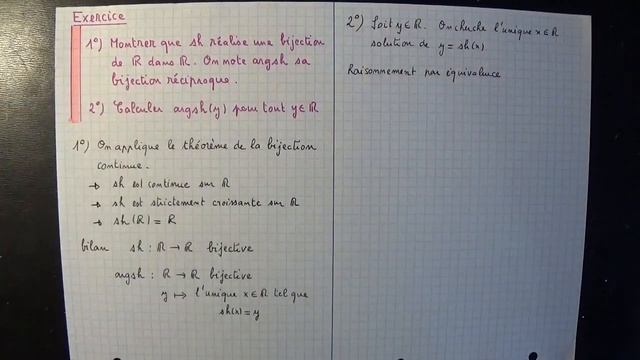 Exercice
1°) Montrer que sh réalise une bijection
de ℝ dans ℝ. On note argsh sa
bijection réciproque.
2°) Calculer argsh(y) pour tout y∈ℝ
1°) On applique le théorème de la bijection
continue.
→ sh est continue sur ℝ
→ sh est strictement croissante sur ℝ
→ sh(ℝ) = ℝ
bilan sh : ℝ → ℝ bijective
argsh : ℝ → ℝ bijective
y ↦ l'unique x∈ℝ tel que
sh(x) = y
2°) Soit y∈ℝ. On cherche l'unique x∈ℝ
solution de y = sh(x).
Raisonnement par équivalence